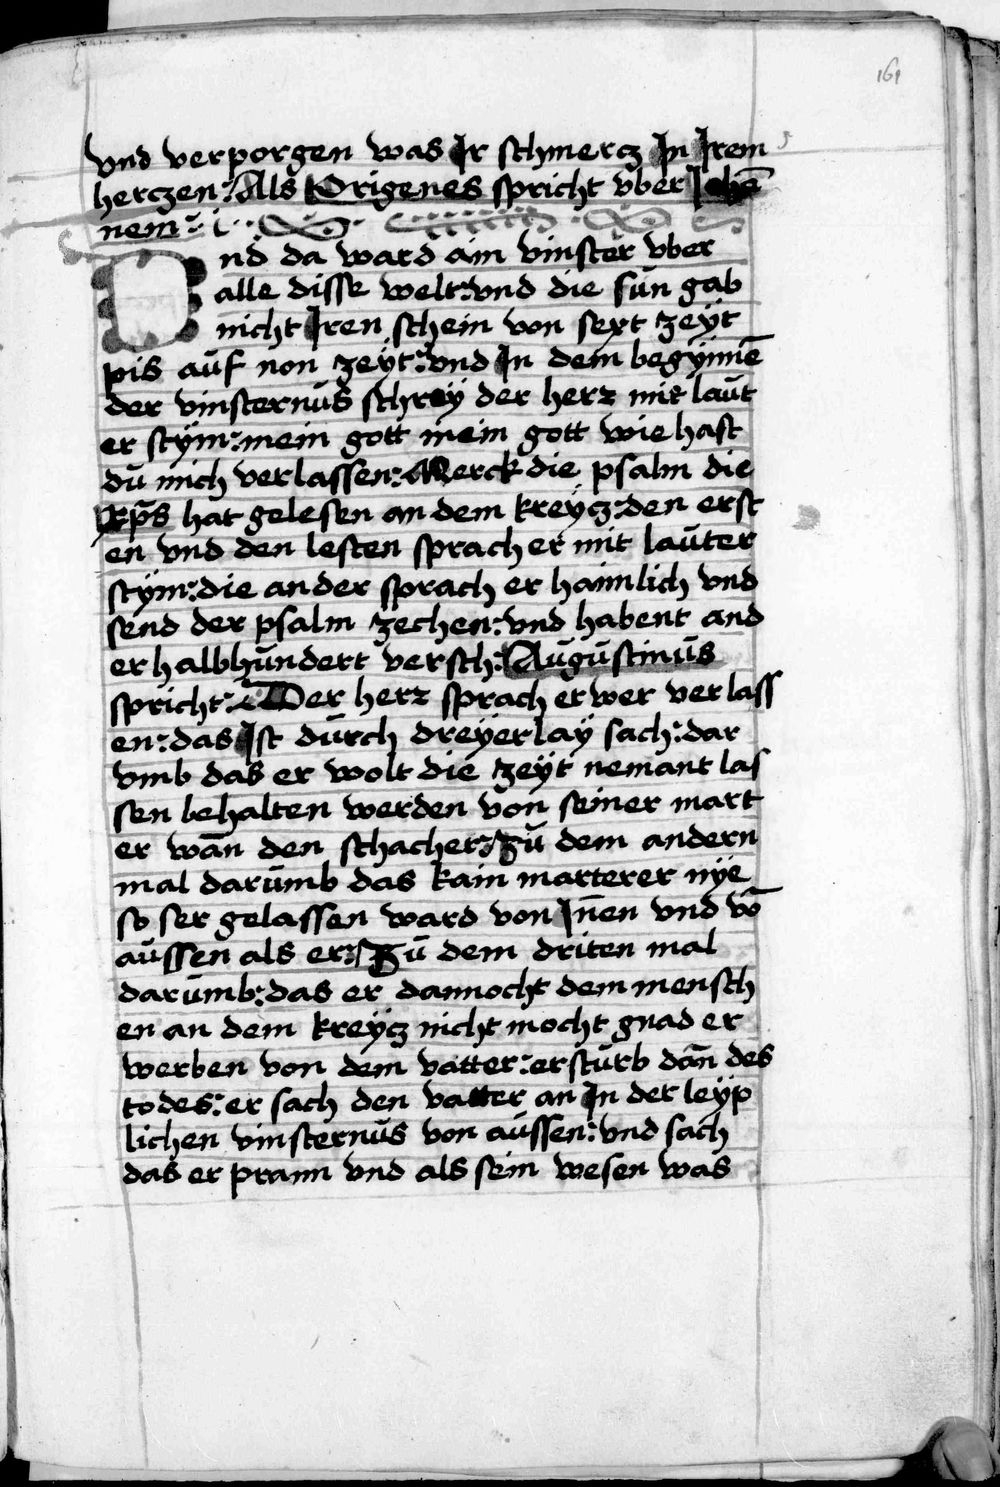 161
vnd verporgen was Ir schmercz In Irem
herczen: Als Origenes spricht vber Johē
nem:
Vnd da ward ain vinster vber
alle disse welt: vnd die sun gab
nicht Iren schein von sext zeÿt
pis auf non zeÿt: vnd In dem begÿnnē
der vinsternus schreÿ der herz mit laut
er stÿm: mein gott mein gott wie hast
du mich verlassen: Merck die psalm die
xp̄s hat gelesen an dem kreÿcz: den erst
en vnd den lesten sprach er mit lauter
stÿm: die ander sprach er haimlich vnd
send der psalm zechen: vnd habent and
erhalbhundert versch: Augustinus
spricht: Der herz sprach er wer verlass
en: das Ist durch dreÿerlaÿ sach: dar
vmb das er wolt die zeÿt nemant las
sen behalten werden von seiner mart
er wān den schacher: Zu dem andern
mal darumb das kain marterer nÿe
so ser gelassen ward von Inen vnd vō
aussen als er: Zu dem driten mal
darumb: das er dannocht dem mensch
en an dem kreÿcz nicht mocht gnad er
werben von dem vatter: er sturb dān des
todes: er sach den vatter an In der leÿp
lichen vinsternus von aussen: vnd sach
das er prann vnd als sein wesen was